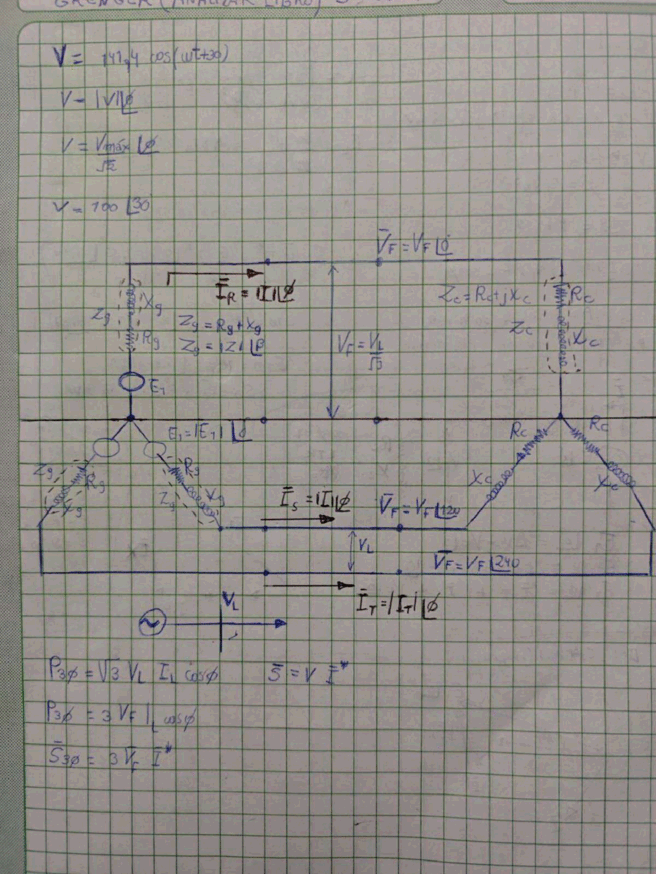 GRENGER (ANALIZAR LIBRO)
V = 141,4 cos(wt+30)
V = |V|⌊ϕ
V = Vmáx/√2 ⌊ϕ
V = 100 ⌊30
V̄F = VF ⌊0
ĪR = |I|⌊ϕ
Zg
Xg
Rg
Zg = Rg + Xg
Zg = |Z| ⌊β
VF = VL/√3
Zc = Rc + jXc
Rc
Zc
Xc
E1
E1 = |E1| ⌊0
Zg
Rg
Xg
Rg
Zg
Xg
Rc
Xc
Rc
Xc
ĪS = |I|⌊ϕ
V̄F = VF ⌊120
VL
V̄F = VF ⌊240
ĪT = |IT| ⌊ϕ
VL
P3ϕ = √3 VL IL cosϕ
S̄ = V Ī*
P3ϕ = 3 VF IL cosϕ
S̄3ϕ = 3 V̄F Ī*